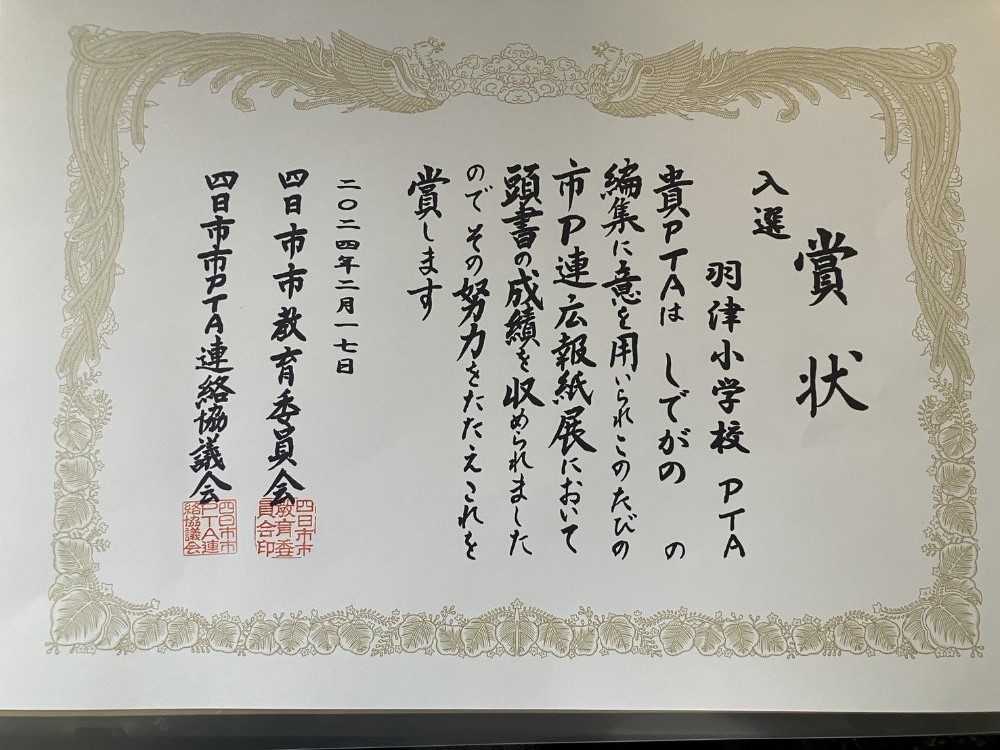 賞状
入選
羽津小学校 PTA
貴PTAは しでがの の
編集に意を用いられこのたびの
市P連広報紙展において
頭書の成績を収められました
ので その努力をたたえこれを
賞します
二〇二四年二月一七日
四日市市教育委員会
四日市市教育委員会印
四日市市PTA連絡協議会
四日市市PTA連絡協議会